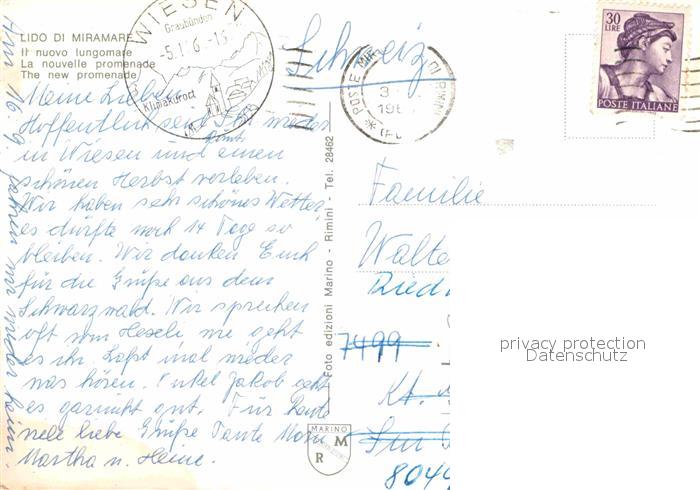 LIDO DI MIRAMARE
Il nuovo lungomare
La nouvelle promenade
The new promenade
WIESEN
Graubünden
Klimakurort
Schweiz
30
LIRE
POSTE ITALIANE
Meine Lieben
Hoffentlich seid Ihr wieder
gut
in Wiesen und einen
schönen Herbst verleben.
Wir haben sehr schönes Wetter,
es dürfte noch 14 Tag so
bleiben. Wir danken Euch
für die Grüße aus dem
Schwarzwald. Wir sprechen
oft vom Heseli wie geht
es ihr Laßt mal wieder
was hören. Onkel Jakob geht
es gut. Für heute
viele liebe Grüße Tante
Martha u. Heine.
Am 16. 9. fahren wir wieder heim.
Foto edizioni Marino - Rimini - Tel. 28462
MARINO
M
R
Familie
Walte
Ried
7499
Kt.
804
privacy protection
Datenschutz